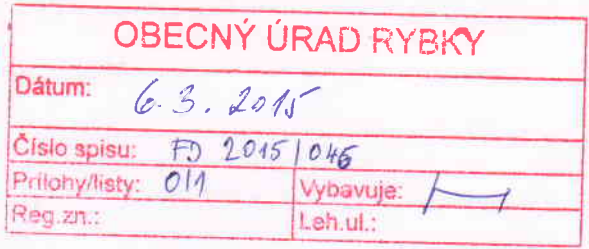 OBECNÝ ÚRAD RYBKY
Dátum: 6.3.2015
Číslo spisu: FD 2015/046
Prílohy/listy: 0/1 Vybavuje:
Reg.zn.: Leh.ul.: